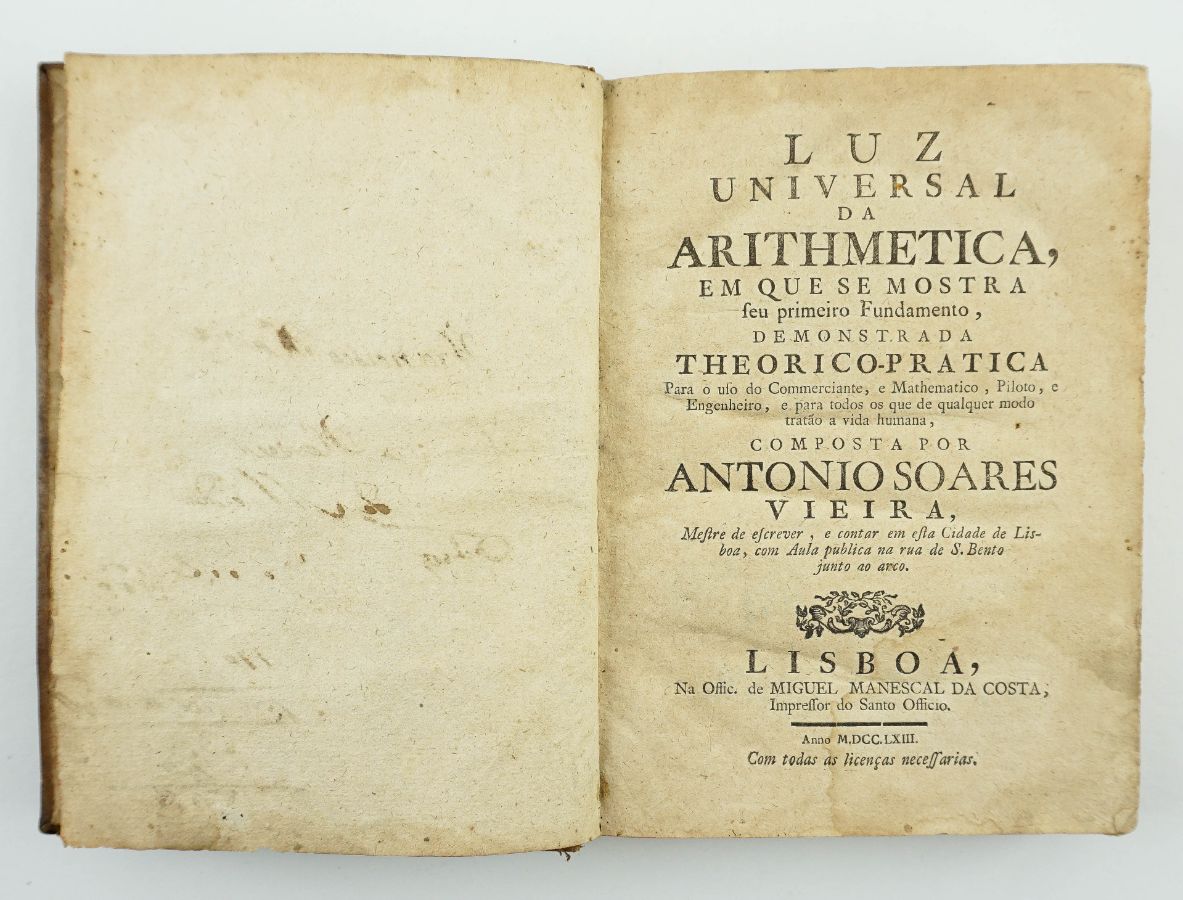 LUZ
UNIVERSAL
DA
ARITHMETICA,
EM QUE SE MOSTRA
ſeu primeiro Fundamento,
DEMONSTRADA
THEORICO-PRATICA
Para o uſo do Commerciante, e Mathematico, Piloto, e
Engenheiro, e para todos os que de qualquer modo
tratão a vida humana,
COMPOSTA POR
ANTONIO SOARES
VIEIRA,
Meſtre de eſcrever, e contar em eſta Cidade de Lis-
boa, com Aula publica na rua de S. Bento
junto ao arco.
LISBOA,
Na Offic. de MIGUEL MANESCAL DA COSTA,
Impreſſor do Santo Officio.
Anno M.DCC.LXIII.
Com todas as licenças neceſſarias.